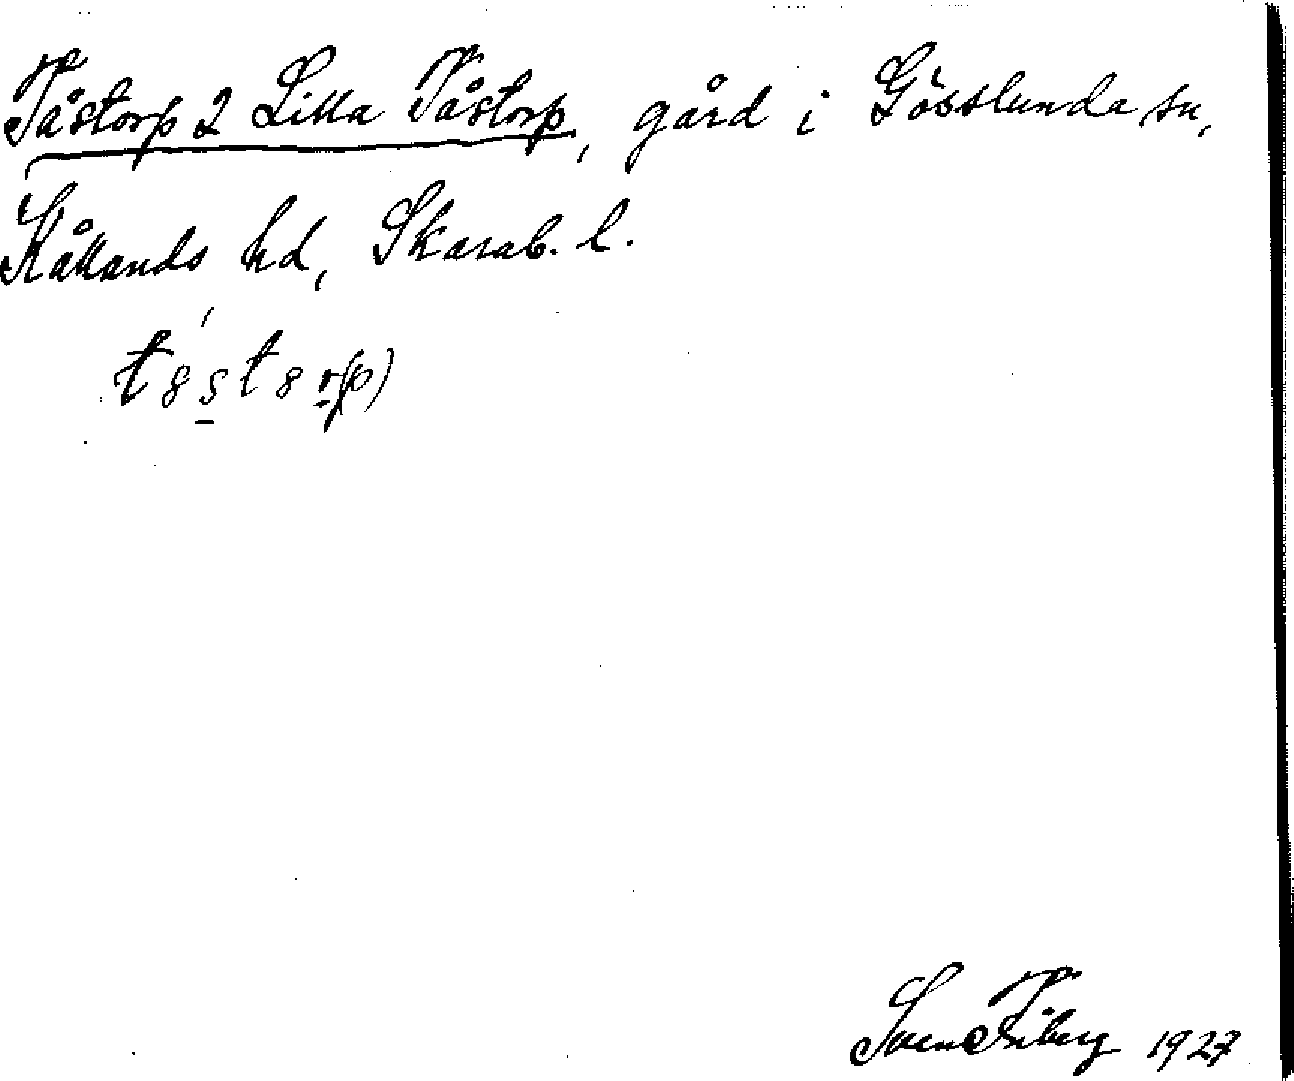 Tåstorp 2 Lilla Tåstorp, gård i Gösslunda sn,
Kållands hd, Skarab. l.
t8st8r(p)
Sven Fiberg 1927